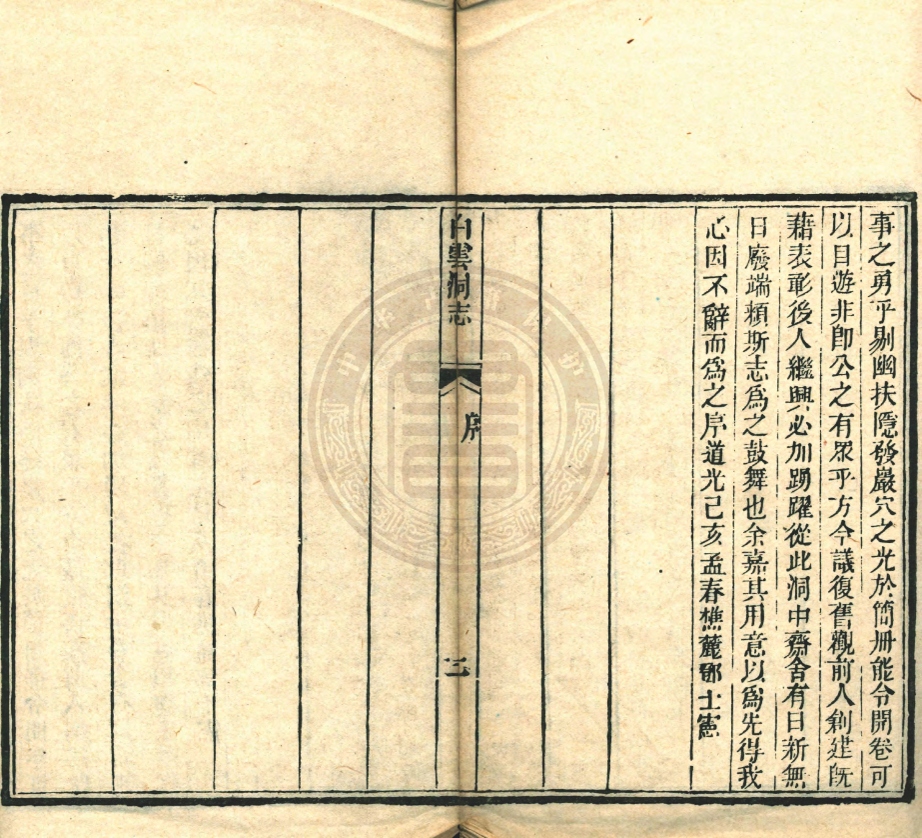 事之勇乎剔幽扶隱發巖穴之光於簡冊能令開卷可
以目遊非卽公之有眾乎方今議復舊觀前人創建旣
藉表彰後人繼興必加踴躍從此洞中齋舍有日新無
日廢端賴斯志爲之鼓舞也余嘉其用意以爲先得我
心因不辭而爲之序道光己亥孟春樵麓鄧士憲
白雲洞志
序
三